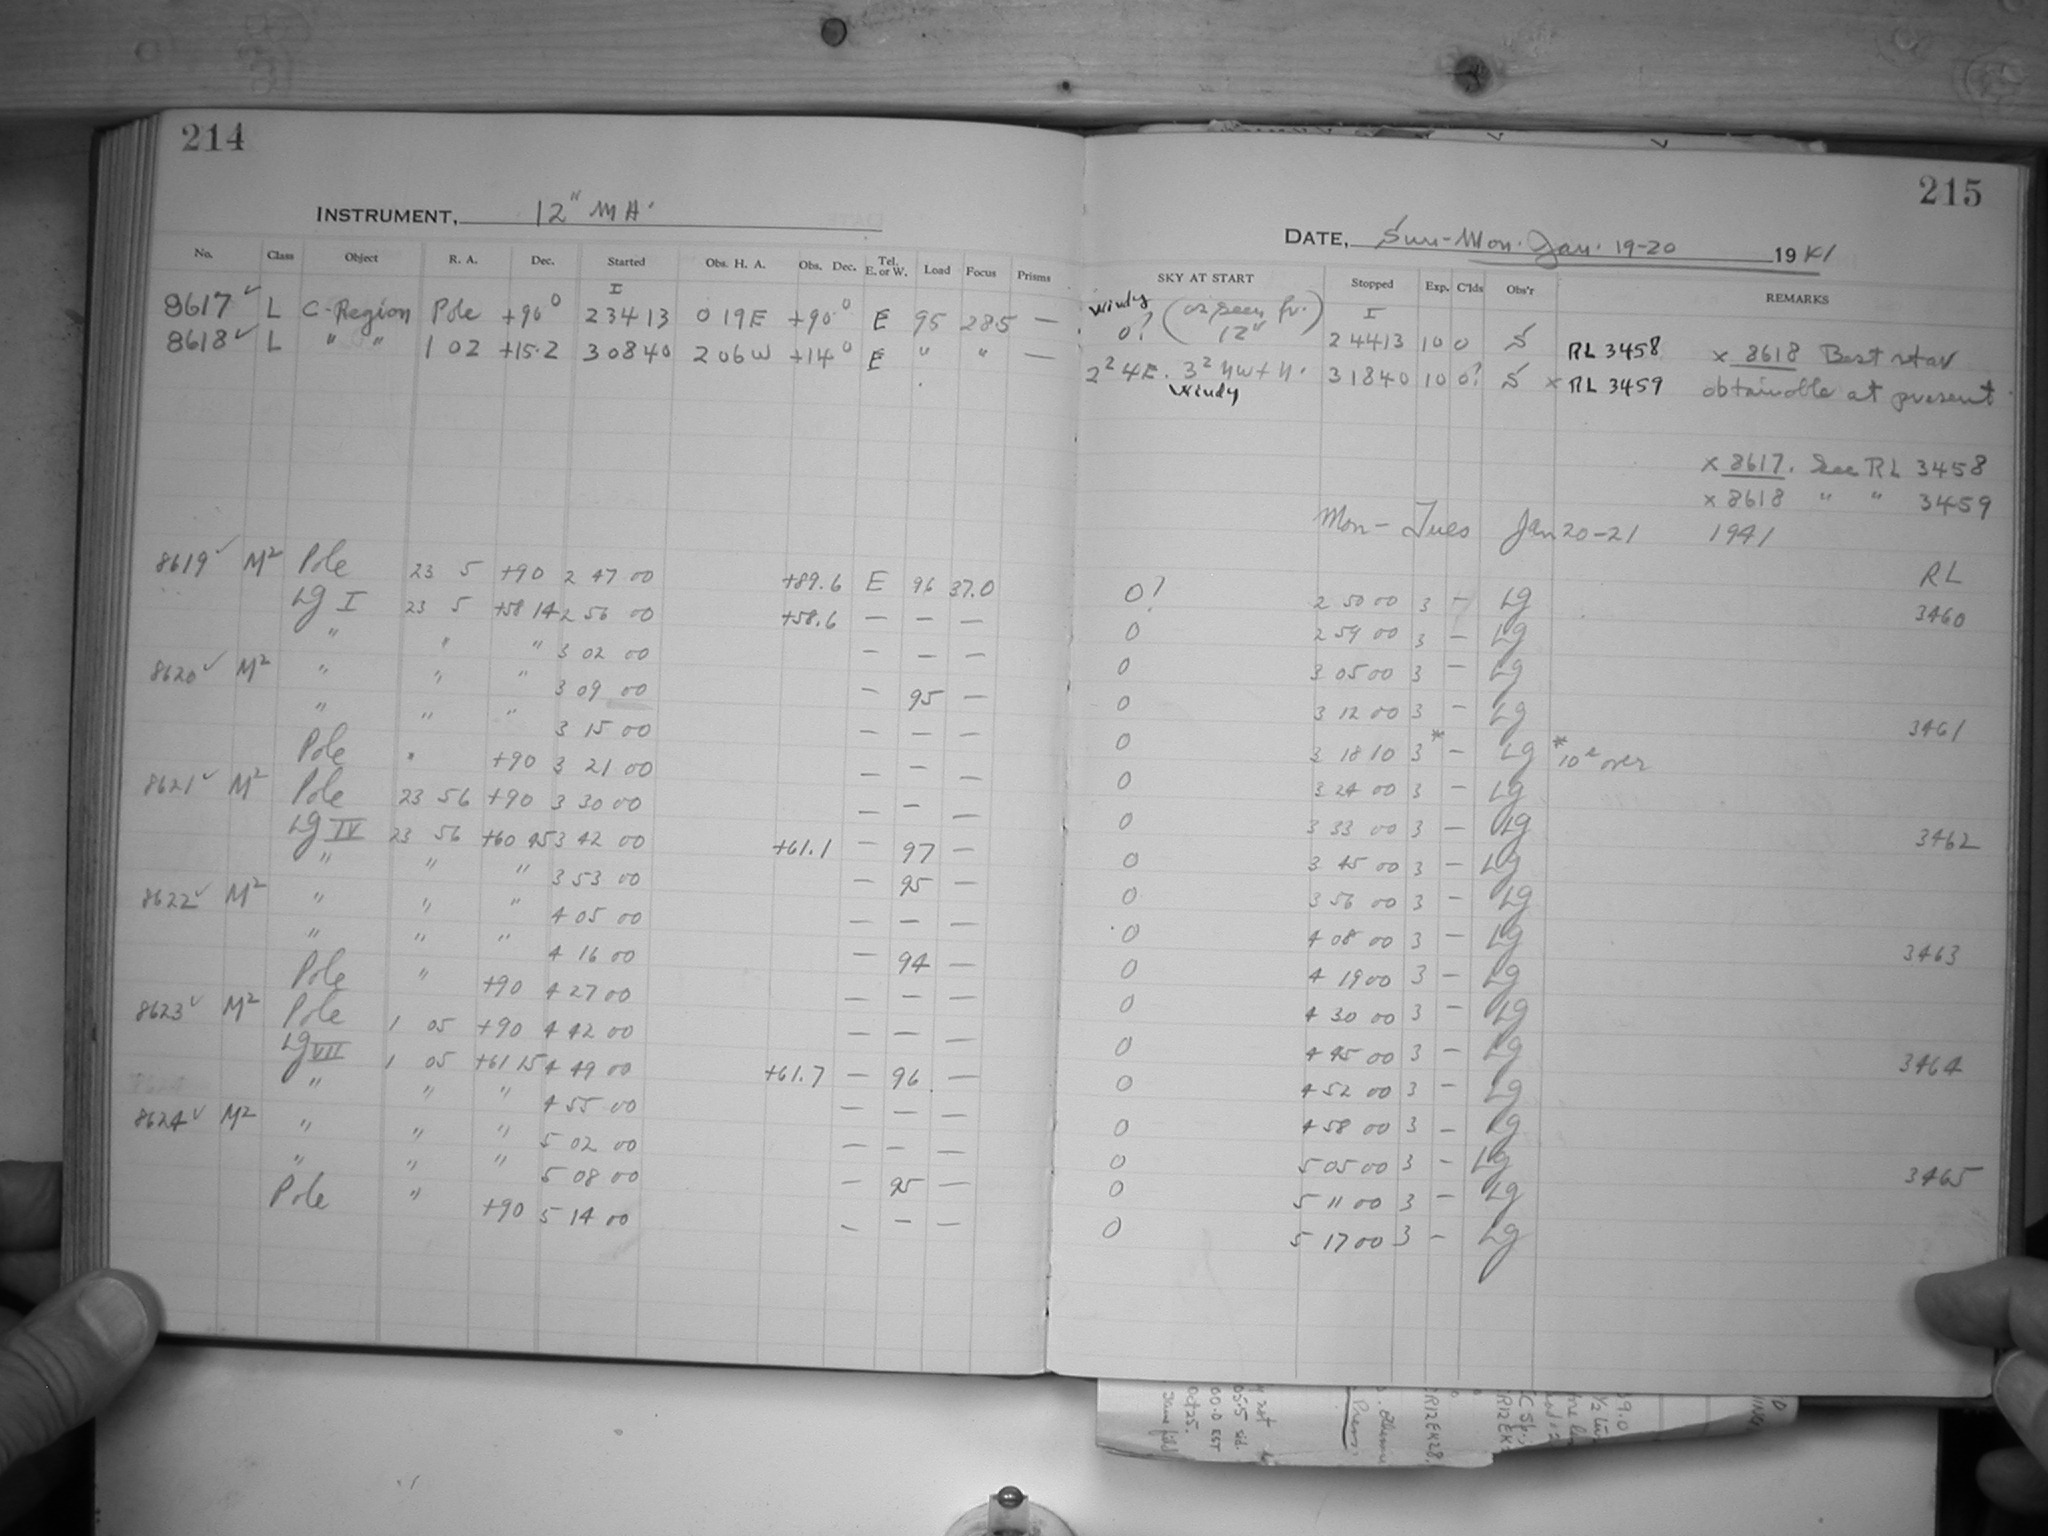 214
INSTRUMENT, 12" MA'
No. Class Object R. A. Dec. Started Obs. H. A. Obs. Dec. Tel. E. or W. Load Focus Prisms
8617 ✓ L C-Region Pole +90° 23413 019E +90° E 95 285 —
8618 ✓ L " " 1 02 +15.2 30840 206W +14° E " " —
8619 ✓ M² Pole 23 5 +90 2 47 00 +89.6 E 96 37.0
Lg I 23 5 +58 14 2 56 00 +58.6 — — —
" " " 3 02 00 — — —
8620 ✓ M² " " " 3 09 00 — 95 —
" " " 3 15 00 — — —
Pole " +90 3 21 00 — — —
8621 ✓ M² Pole 23 56 +90 3 30 00 — — —
Lg IV 23 56 +60 45 3 42 00 +61.1 — 97 —
" " " 3 53 00 — 95 —
8622 ✓ M² " " " 4 05 00 — — —
" " " 4 16 00 — 94 —
Pole " +90 4 27 00 — — —
8623 ✓ M² Pole 1 05 +90 4 42 00 — — —
Lg VII 1 05 +61 15 4 49 00 +61.7 — 96 —
" " " 4 55 00 — — —
8624 ✓ M² " " " 5 02 00 — — —
" " " 5 08 00 — 95 —
Pole " +90 5 14 00 — — —
215
DATE, Sun-Mon. Jan. 19-20 1941
SKY AT START Stopped Exp. C'lds Obs'r REMARKS
Windy (as seen fr.
0? 12" 24413 10 0 S RL 3458 x 8618 Best star
2² 4E. 3² NW + N. 31840 10 0? S x RL 3459 obtainable at present
Windy
x 8617. See RL 3458
x 8618 " " 3459
Mon - Tues Jan 20-21 1941
RL
0? 2 50 00 3 — Lg 3460
0 2 59 00 3 — Lg
0 3 05 00 3 — Lg
0 3 12 00 3 — Lg 3461
0 3 18 10 3* — Lg *10ˢ over
0 3 24 00 3 — Lg
0 3 33 00 3 — Lg 3462
0 3 45 00 3 — Lg
0 3 56 00 3 — Lg
0 4 08 00 3 — Lg 3463
0 4 19 00 3 — Lg
0 4 30 00 3 — Lg
0 4 45 00 3 — Lg 3464
0 4 52 00 3 — Lg
0 4 58 00 3 — Lg
0 5 05 00 3 — Lg 3465
0 5 11 00 3 — Lg
0 5 17 00 3 — Lg